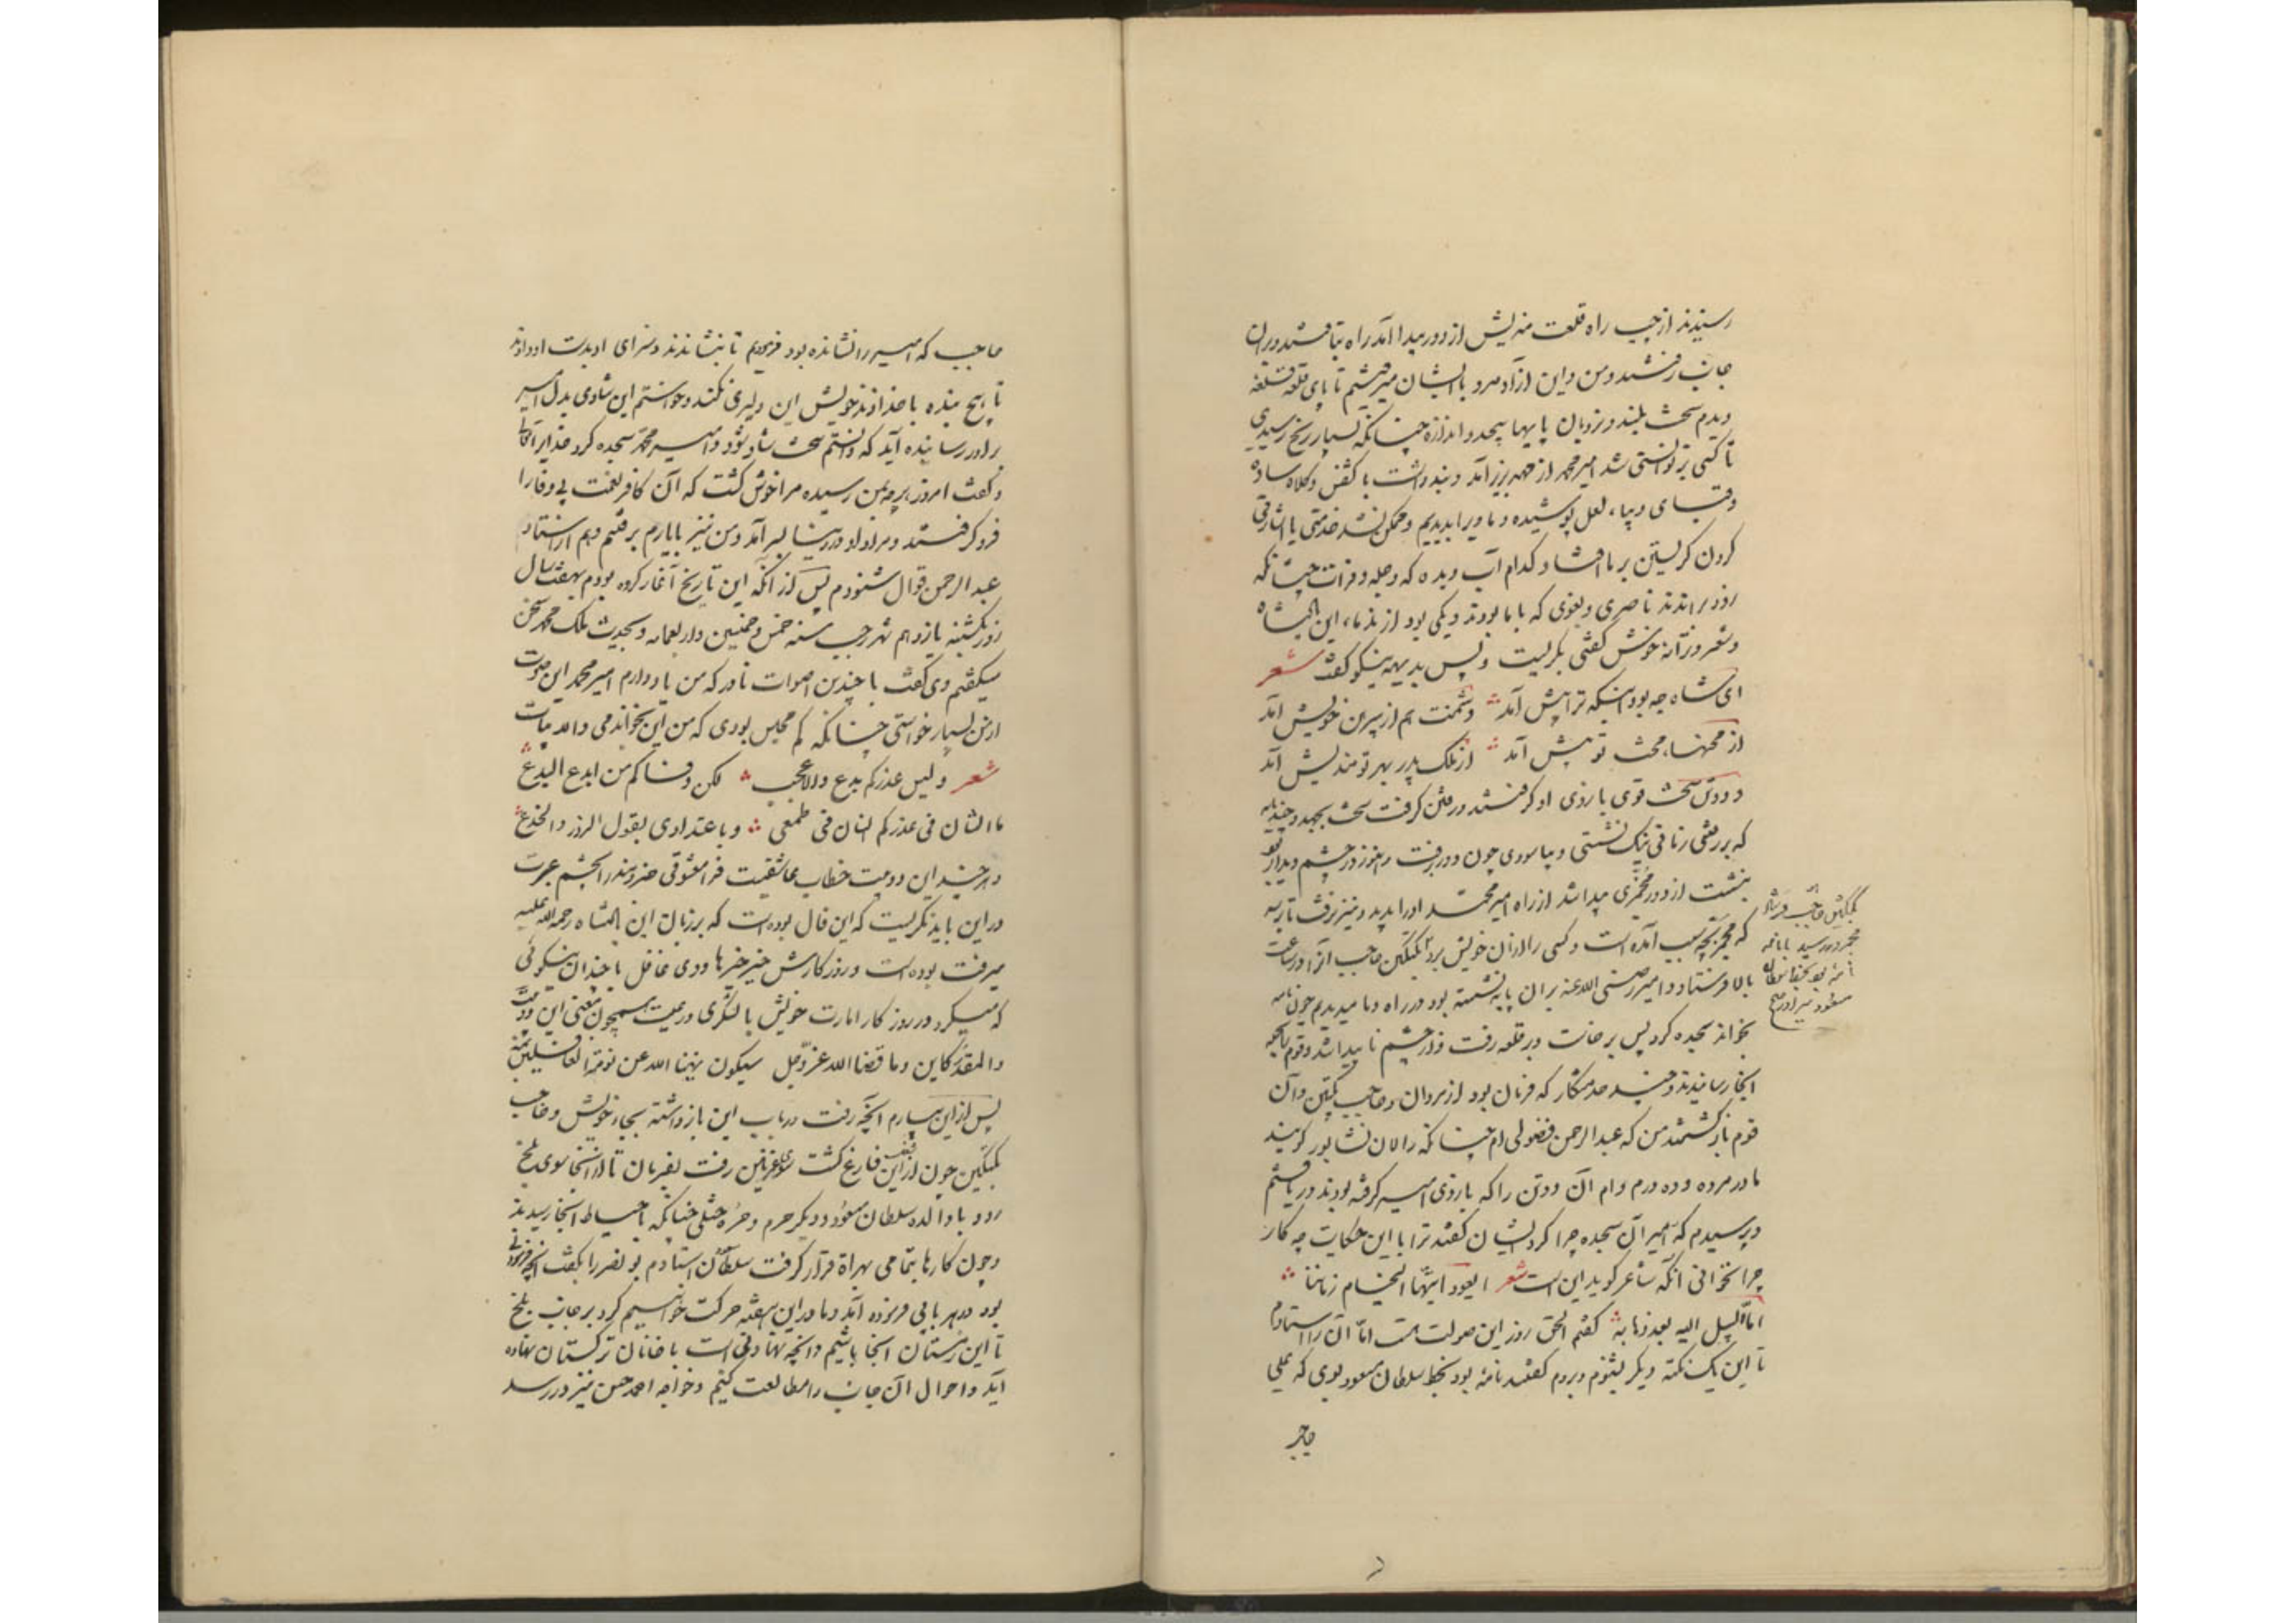 رسیدند از چپ راه قلعت مندیش از دور پیدا آمد راه بتافتند و بران
جانب رفتند و من و این آزاد مرد با ایشان میرفتیم تا پای قلعه قلعهٔ
دیدم سخت بلند و نردبان پایها بیحد و اندازه چنانکه بسیار رنج رسیدی
تا کسی بر توانستی شد امیر محمد از مهد بزیر آمد و بند داشت با کفش و کلاه ساده
و قبای دیبای لعل پوشیده و ما ویرا بدیدیم و ممکن نشد خدمتی یا اشارتی
کردن گریستن بر ما افتاد کدام آب دیده که دجله و فرات چنانکه
رود براندند ناصری و بغوی که با ما بودند و یکی بود از ندمای این پادشاه
و شعر و ترانه خوش گفتی بگریست و پس بدیهه نیکو گفت شعر
ای شاه چه بود اینکه ترا پیش آمد دشمنت هم از پیرهن خویش آمد
از محنتها محنت تو بیش آمد از ملک پدر بهر تو مندیش آمد
و دو تن سخت قوی بازوی او گرفتند و رفتن گرفت سخت بجهد و چند پایه
که بر رفتی زمانی نیک بنشستی و بیاسودی چون دور برفت و هنوز در چشم دیدار بود
بنشست از دور مجمزی پیدا شد از راه امیر محمد او را بدید و نیز نرفت تا پرسد
که مجمز بچه سبب آمده است و کسی را از آن خویش برد بکتکین حاجب آنرا در ساعت
بالا فرستاد و امیر رضی الله عنه بران پایه نشسته بود در راه و ما میدیدیم چون نامه
بخواند سجده کرد پس برخاست و بر قلعه رفت و از چشم ناپیدا شد و قوم بجمله
آنجا رسانیدند و چند خدمتکار که فرمان بود از مردان و حاجب بکتکین و آن
قوم بازگشتند من که عبدالرحمن فضولی ام چنانکه زالان نشابور گویند
مادر مرده و ده درم وام آن دو تن را که بازوی امیر گرفته بودند دریافتم
و پرسیدم که امیر آن سجده چرا کرد ایشان گفتند ترا با این حکایت چه کار
چرا نخوانی آنکه شاعر گوید این است شعر ایعود ایتها الخیام زماننا
ام لا سبیل الیه بعد ذهابه گفتم الحق روز این صوت هست اما آن را استادم
تا این یک نکته دیگر بشنوم و بروم گفتند نامهٔ بود بخط سلطان مسعود بوی که علی
بکتکین حاجب
مجمز در رسید با نامه
نامه بود بخط سلطان
مسعود
حاجب
حاجب که امیر را نشانده بود فرمودیم تا بنشاندند و سزای او بدست او دادند
تا هیچ بنده با خداوند خویش این دلیری نکند و خواستم این شادی بدل امیر
برادر رسانیده آید که دانستم سخت شاد شود و امیر محمد سجده کرد خدایرا تعالی
و گفت امروز هر چه بمن رسیده مرا خوش گشت که آن کافر نعمت بی وفا را
فرو گرفتند و مراد او در دنیا بسر آمد و من نیز با یارم برفتم و هم از استاد
عبدالرحمن قوال شنودم پس از آنکه این تاریخ آغاز کرده بودم بهفت سال
روز یکشنبه یازدهم شهر رجب سنه خمس و خمسین و اربعمائه و بحدیث ملک محمد سخن
میگفتیم وی گفت با چندین اصوات نادر که من یاد دارم امیر محمد این صوت
از من بسیار خواستی چنانکه کم مجلس بودی که من این نخواندمی والابیات
شعر و لیس غدرکم بدع ولا عجب لکن وفاکم من ابدع البدع
ما الشان فی غدرکم الشان فی طمعی و باعتدادی بقول الزور والخدع
و هر چند این دو بیت خطاب عاشقیست فرا معشوقی خردمند را بچشم عبرت
در این باید نگریست که این فال بوده است که بر زبان این پادشاه رحمه الله علیه
میرفت بوده است و روزگارش خیر خیرها و وی غافل با چندان نیکوئی
که میکرد در روزگار امارت خویش با لشکری و رعیت همچون معنی این دو بیت
والمقدر کاین و ما قضا الله عز و جل سیکون نبهنا الله عن نومة الغافلین بمنه
پس از این بیارم آنچه رفت در باب این بازداشته بجای خویش و حاجب
بکتکین چون از این شغل فارغ گشت سوی غزنین رفت بفرمان تا از آنجا سوی بلخ
رود با والده سلطان مسعود و دیگر حرم و حره ختلی چنانکه با احتیاط آنجا رسیدند
و چون کارها بتمامی بهراة قرار گرفت سلطان استادم بونصر را بگفت آنچه فرمودنی
بود در هر بابی فرموده آمد و ما در این هفته حرکت خواهیم کرد بر جانب بلخ
تا این زمستان آنجا باشیم و آنچه نهادنی است با خانان ترکستان نهاده
آید و احوال آن جانب را مطالعت کنیم و خواجه احمد حسن نیز در رسد